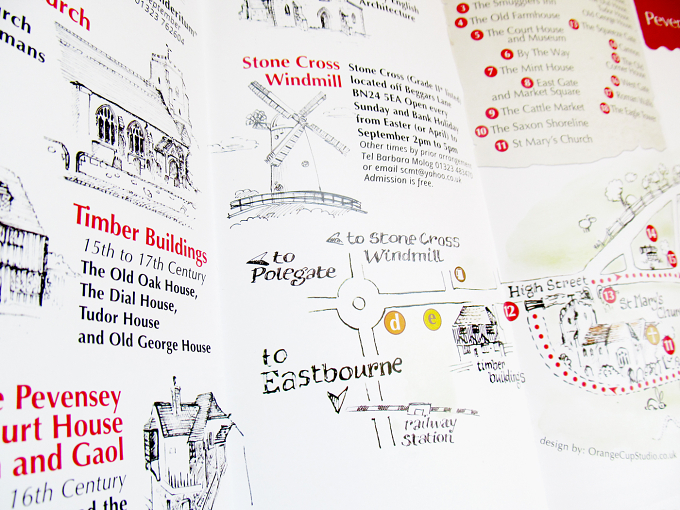 urch
rmans
01323 762664
Timber Buildings
15th to 17th Century
The Old Oak House,
The Dial House,
Tudor House
and Old George House
e Pevensey
ourt House
and Gaol
16th Century
and the
English
Architecture
Stone Cross
Windmill
Stone Cross (Grade II* listed)
located off Beggars Lane
BN24 5EA Open every
Sunday and Bank Holiday
from Easter (or April) to
September 2pm to 5pm
Other times by prior arrangement
Tel Barbara Molog 01323
or email scmt@yahoo.co.uk
Admission is free.
to Stone Cross
Windmill
to
Polegate
d
e
to
Eastbourne
railway
station
timber
buildings
12
High Street
13
St Mary's
Church
11
14
15
design by: OrangeCupStudio.co.uk
3 The Smugglers Inn
4 The Old Farmhouse
5 The Court House
and Museum
6 By The Way
7 The Mint House
8 East Gate
and Market Square
9 The Cattle Market
10 The Saxon Shoreline
11 St Mary's Church
Peven